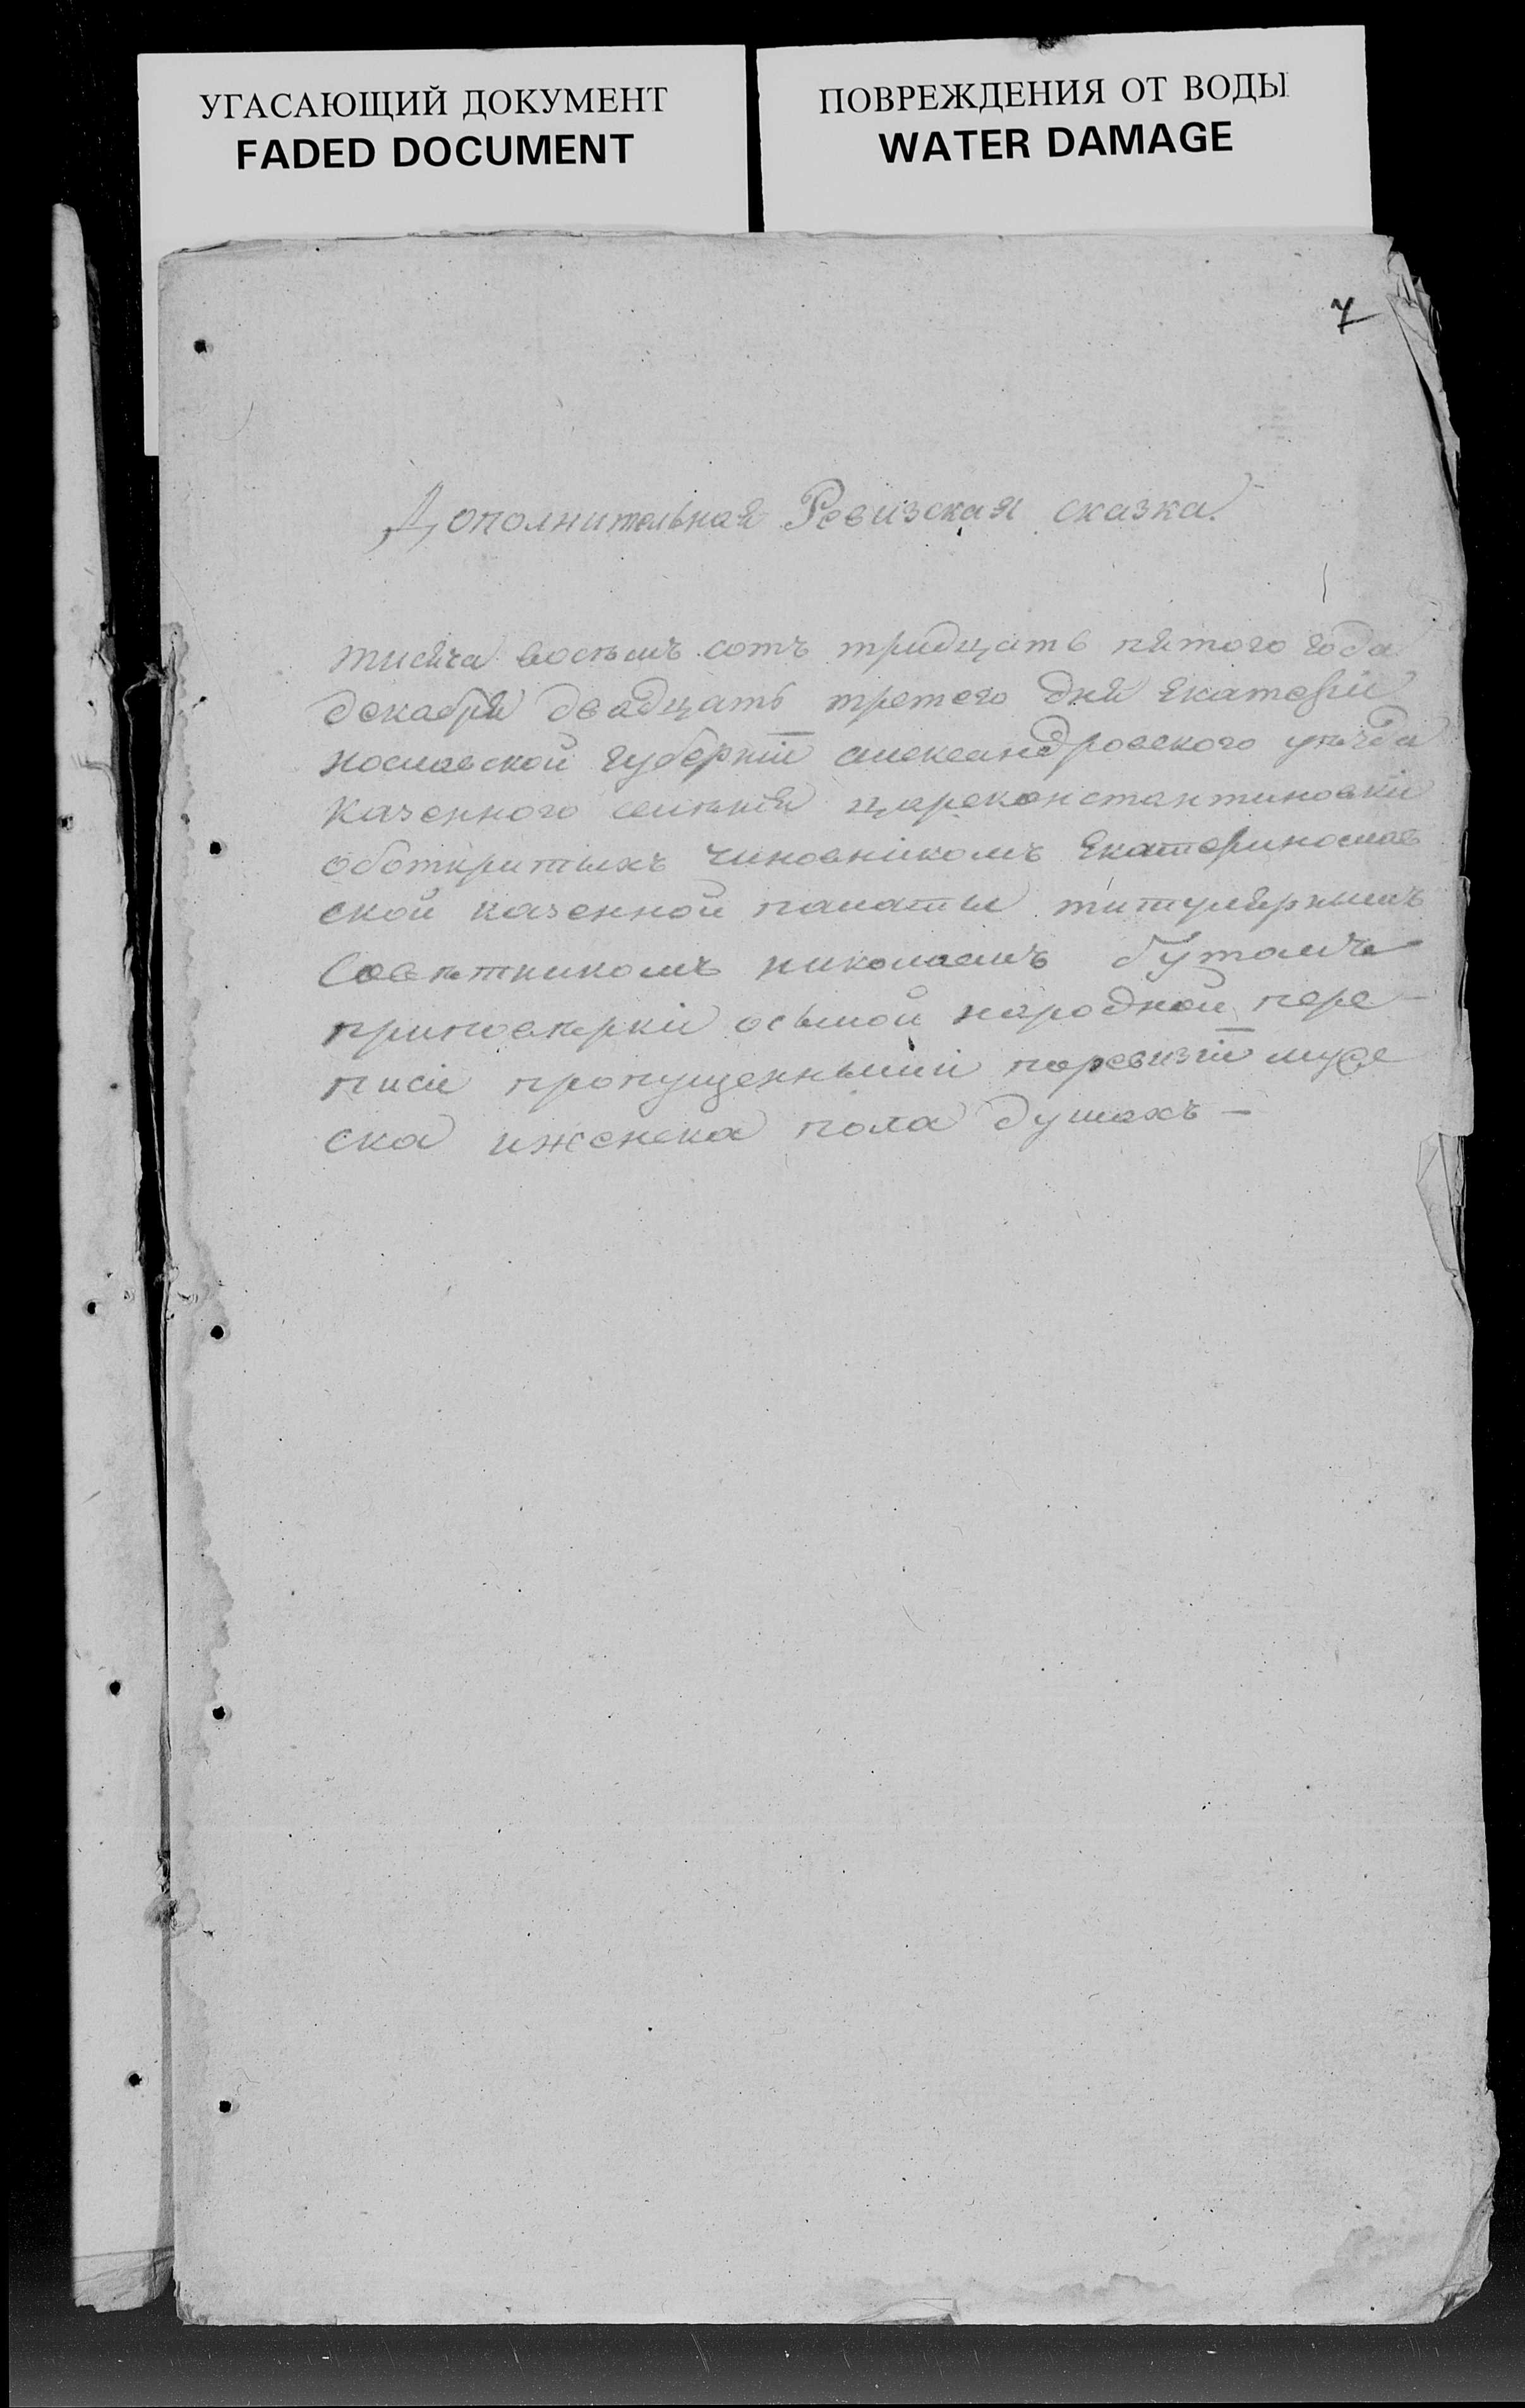 УГАСАЮЩИЙ ДОКУМЕНТ
FADED DOCUMENT
ПОВРЕЖДЕНИЯ ОТ ВОДЫ
WATER DAMAGE
7
Дополнительная Ревизская сказка.
тисяча восѣмъ сотъ тридцать пятого года
декабря двадцать третего дня Екатерін
нославской губерніи александровского уѣзда
казенного селѣнія цареконстантиновки
оботкритыхъ чиновнікомъ Екатеринослав
ской казенной палаты титулярнымъ
Совѣтникомъ николаемъ
приповѣркі осьмой народной пере
писи пропущенныміи поревизіи муже
ска иженска пола душахъ —